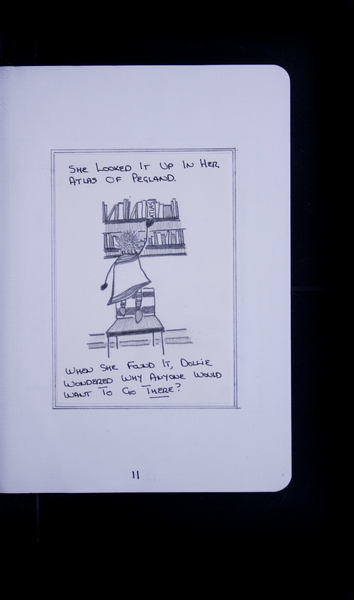 She Looked It Up In Her
Atlas Of Pegland.
When She Found It, Dollie
Wondered Why Anyone Would
Want To Go There?
11